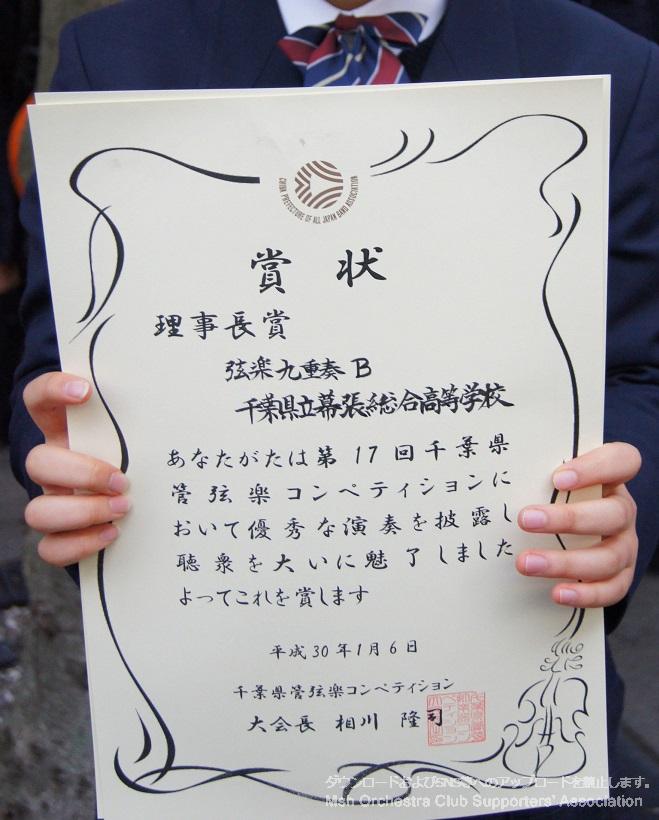 CHIBA PREFECTURE OF ALL JAPAN BAND ASSOCIATION
賞状
理事長賞
弦楽九重奏B
千葉県立幕張総合高等学校
あなたがたは第17回千葉県
管弦楽コンペティションに
おいて優秀な演奏を披露し
聴衆を大いに魅了しました
よってこれを賞します
平成30年1月6日
千葉県管弦楽コンペティション
大会長 相川 隆司
ダウンロードおよびSNS等へのアップロードを禁止します。
Msh Orchestra Club Supporters' Association